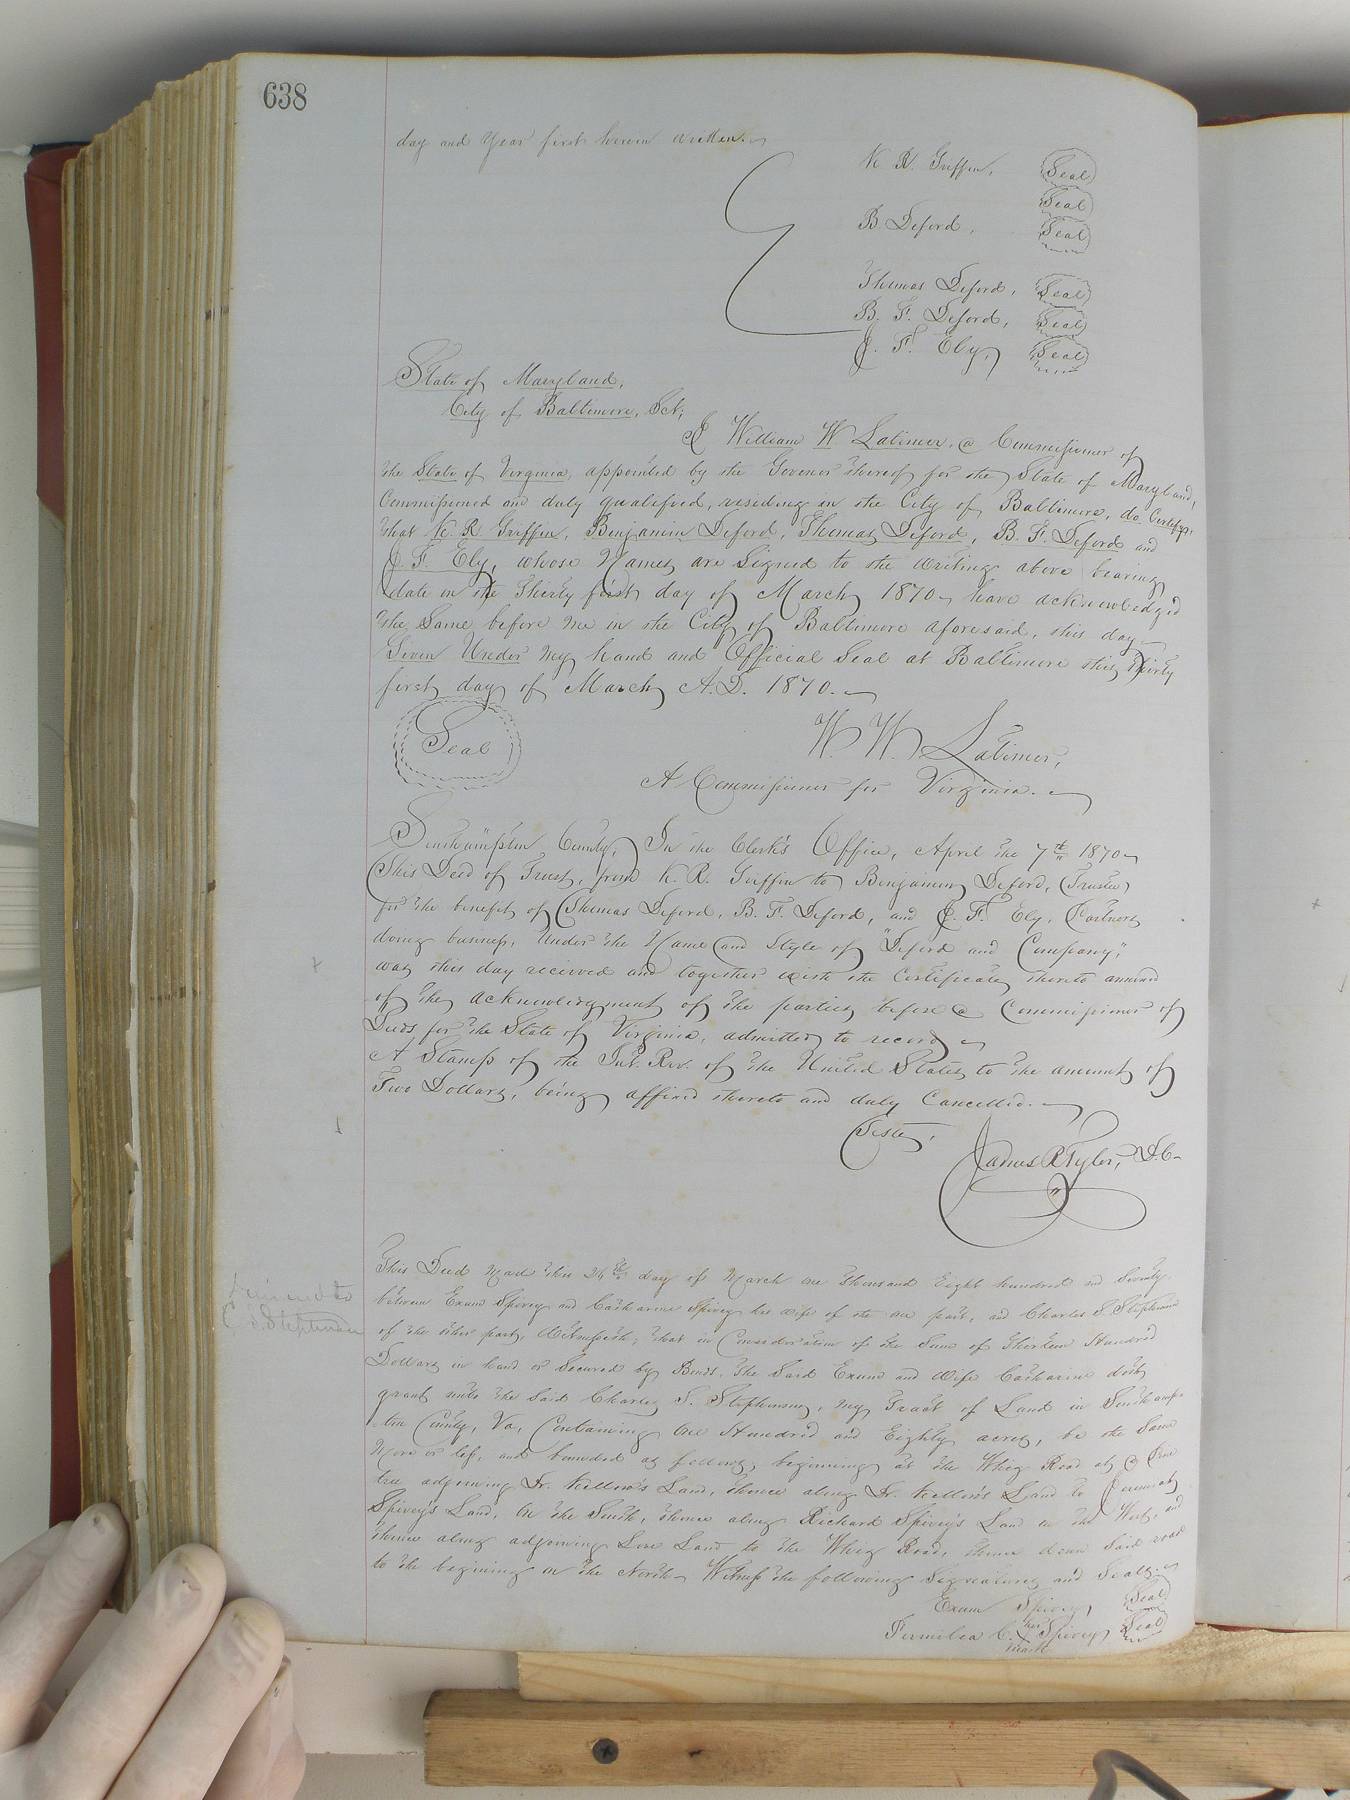 638
day and Year first herein written.
K R. Griffin, Seal
Seal
B Deford, Seal
Thomas Deford, Seal
B. F. Deford, Seal
J. F. Ely, Seal
State of Maryland,
City of Baltimore, Sct;
I William W Latimer, a Commissioner of
the State of Virginia, appointed by the Govenor thereof for the State of Maryland,
Commissioned and duly qualified, residing in the City of Baltimore, do Certify,
that K. R. Griffin, Benjamin Deford, Thomas Deford, B. F. Deford and
J. F. Ely, whose Names are Signed to the writing above bearing
date on the Thirty first day of March 1870 have acknowledged
the Same before me in the City of Baltimore aforesaid, this day
Given Under My hand and Official Seal at Baltimore this thirty
first day of March A.D. 1870.
Seal
W. W. Latimer,
A Commissioner for Virginia.
Southampton County, In the Clerk's Office, April the 7th 1870
This Deed of Trust, from K. R. Griffin to Benjamin Deford, (Trustee)
for the benefit of Thomas Deford, B. F. Deford, and J. F. Ely, Partners
doing business, Under the Name and Style of "Deford and Company,"
was this day received and together with the Certificate thereto annexed
of the acknowledgment of the parties before a Commissioner of
Deeds for the State of Virginia, admitted to record
A Stamp of the Int. Rev. of the United States to the amount of
Two Dollars, being affixed thereto and duly Cancelled.
Teste,
James R Tyler, D.C.
This Deed Mad this 24th day of March One Thousand Eight hundred and Seventy
between Exum Spivey and Catharine Spivey his wife of the one part, and Charles S Stephenson
of the other part, Witnesseth; that in Consideration of the Sum of Thirteen Hundred
Dollars in hand or Secured by Bonds, the Said Exum and Wife Catharine doth
C S Stephenson
grant unto the Said Charles S. Stephenson, my Tract of Land in Southamp-
ton County, Va, Containing One Hundred and Eighty acres, be the Same
More or less, and bounded as follows, beginning at the Whig Road at a Pine
tree adjoining Dr. Kellow's Land, thence along Dr. Kellow's Land to
Spivey's Land, On the South, thence along Richard Spivey's Land on the West, and
thence along adjoining Land to the Whig Road, thence down Said road
to the begining on the North Witness the following Signatures and Seals.
Exum Spivey, Seal
C. her Spivey Seal
mark